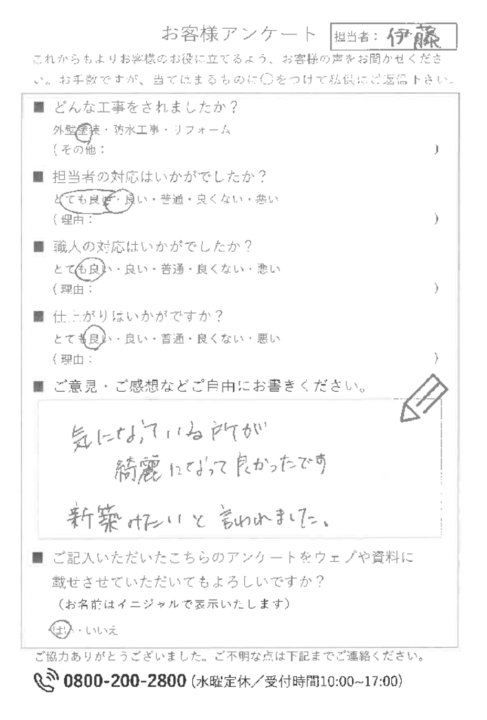 お客様アンケート
担当者：伊藤
これからもよりお客様のお役に立てるよう、お客様の声をお聞かせくださ
い。お手数ですが、当てはまるものに○をつけて私供にご返信下さい。
■ どんな工事をされましたか？
外壁塗装・防水工事・リフォーム
（その他： ）
■ 担当者の対応はいかがでしたか？
とても良い・良い・普通・良くない・悪い
（理由： ）
■ 職人の対応はいかがでしたか？
とても良い・良い・普通・良くない・悪い
（理由： ）
■ 仕上がりはいかがですか？
とても良い・良い・普通・良くない・悪い
（理由： ）
■ ご意見・ご感想などご自由にお書きください。
気になっている所が
綺麗になって良かったです
新築みたいと言われました。
■ ご記入いただいたこちらのアンケートをウェブや資料に
載せさせていただいてもよろしいですか？
（お名前はイニシャルで表示いたします）
はい・いいえ
ご協力ありがとうございました。ご不明な点は下記までご連絡ください。
0800-200-2800（水曜定休／受付時間10:00~17:00）